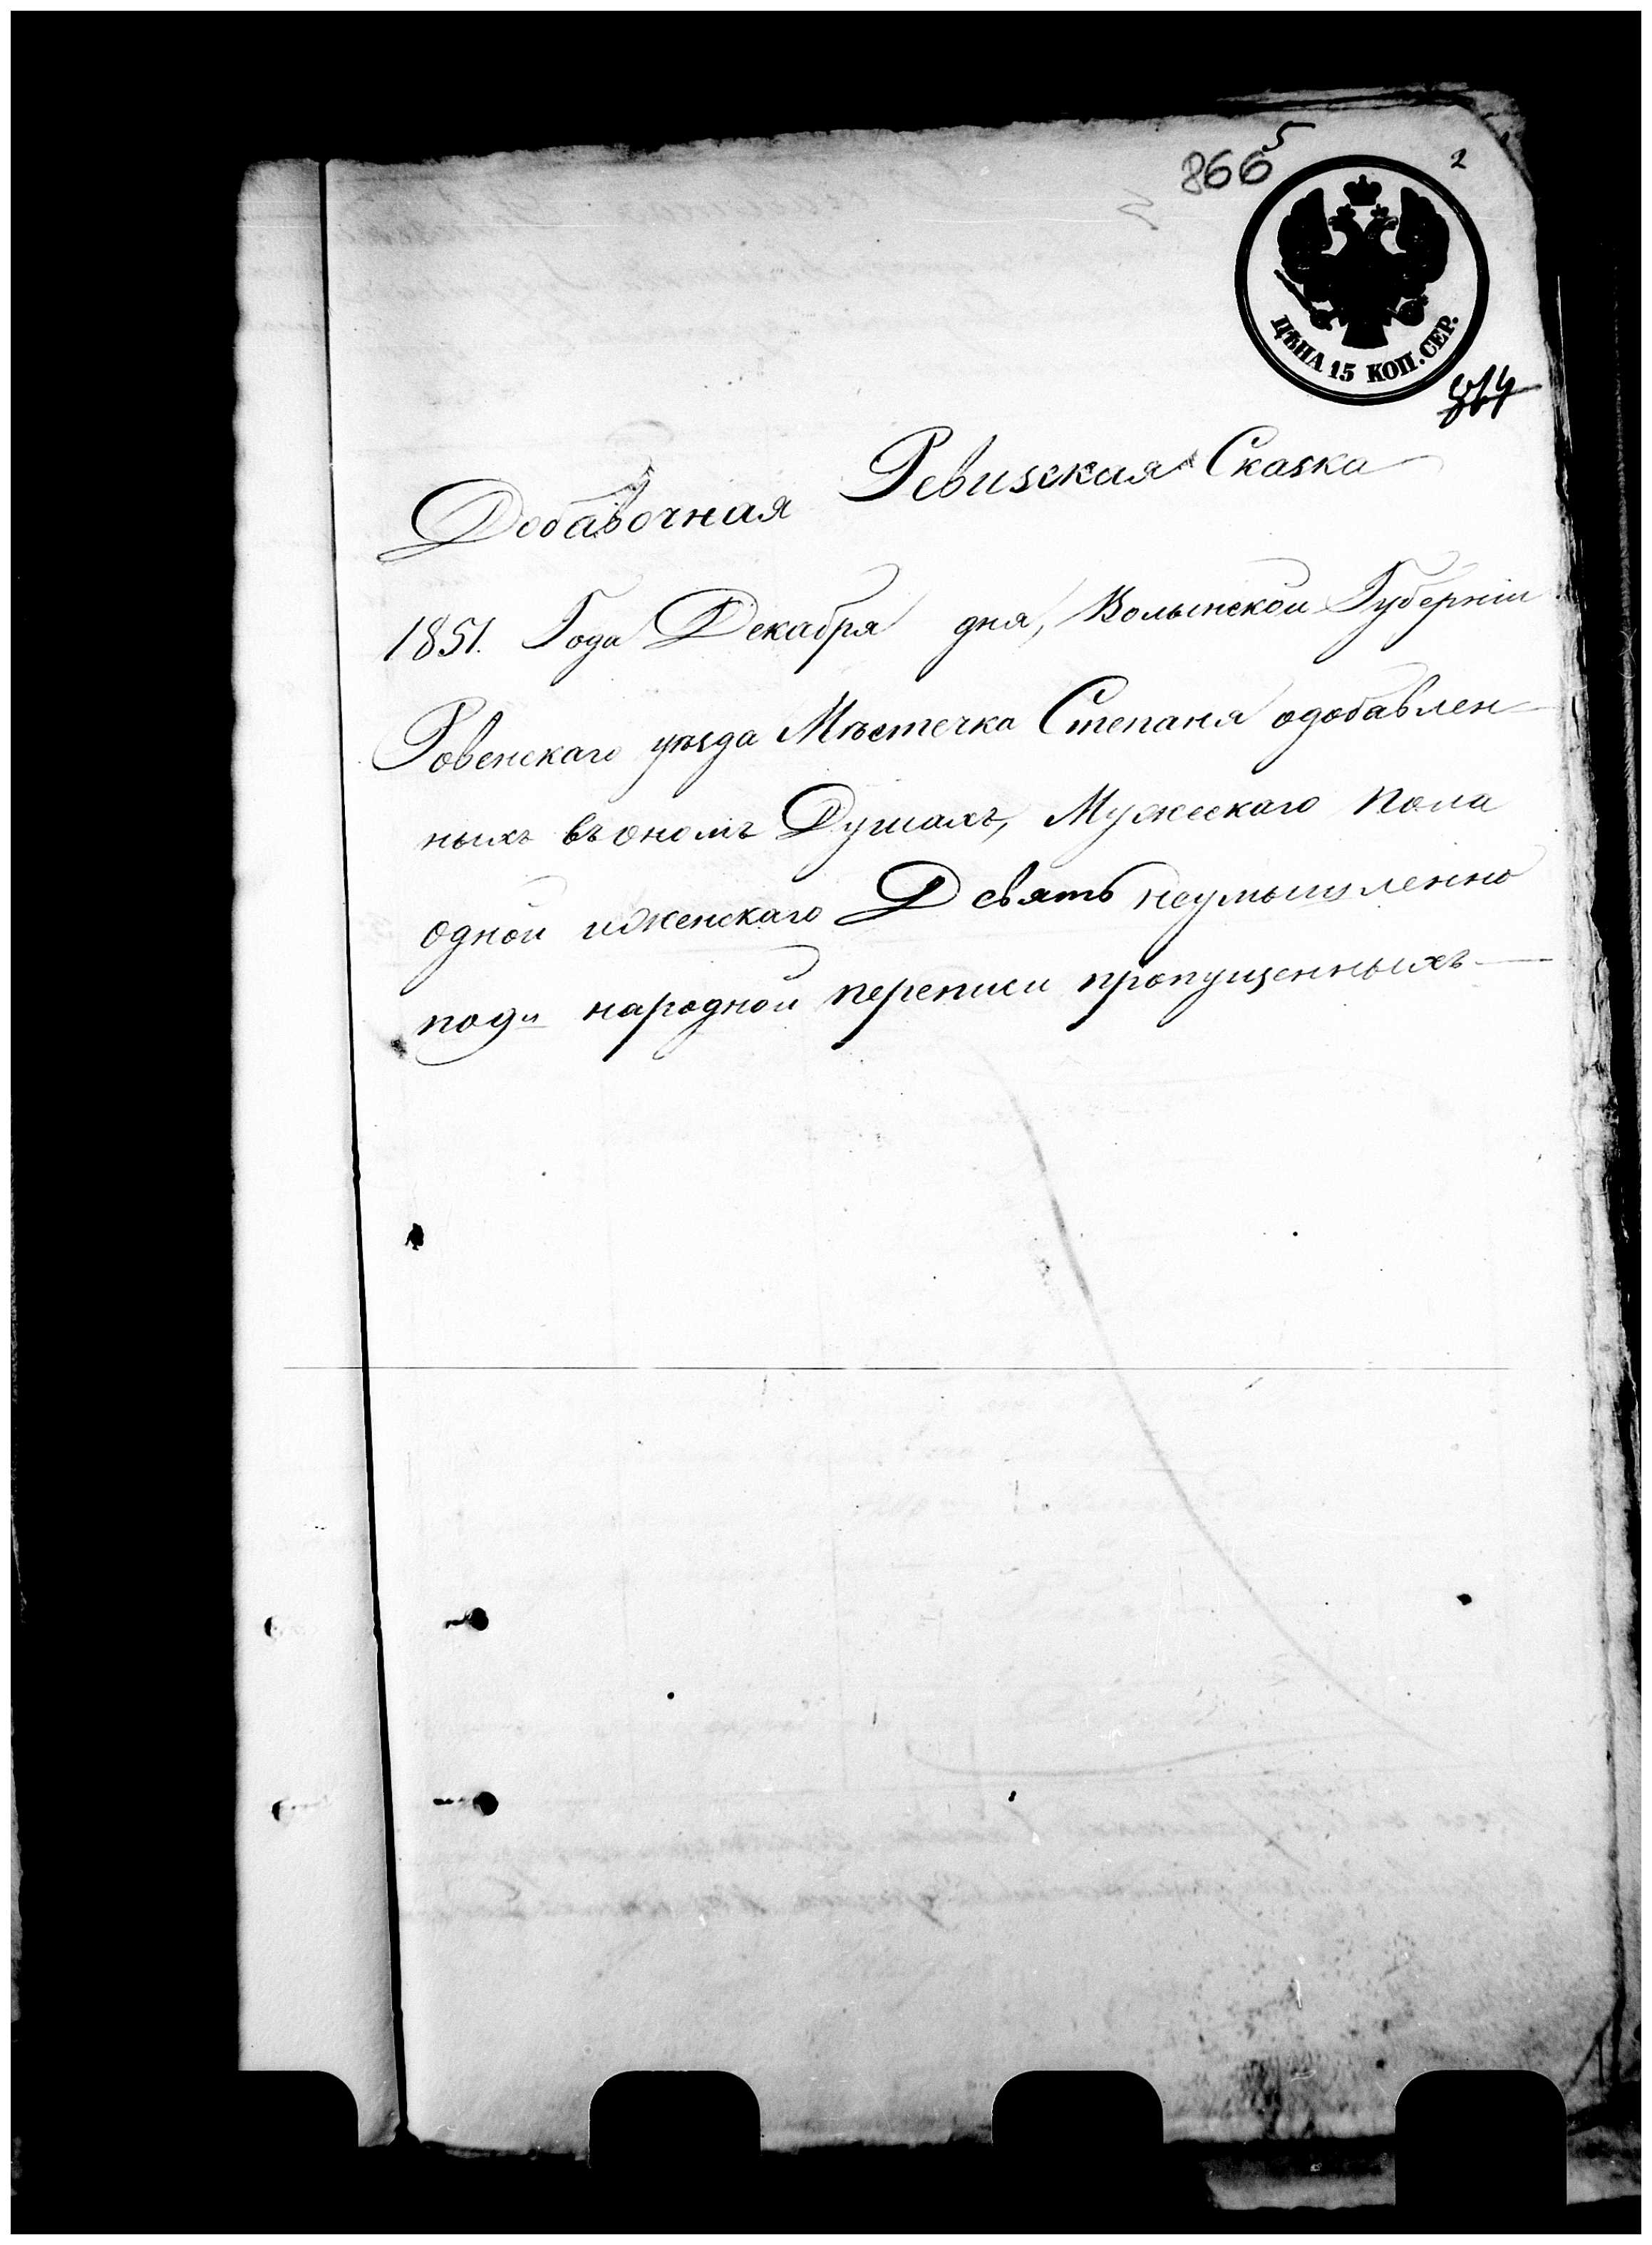 866 5
2
ЦѢНА 15 КОП. СЕР.
Добавочная Ревизская Сказка
1851. Года Декабря дня, Волынской Губерніи
Ровенскаго уѣзда Мѣстечка Степаня одобавлен-
ныхъ въ ономъ Душахъ, Мужескаго пола
одной и женскаго Девять неумышленно
по 9й народной переписи пропущенныхъ